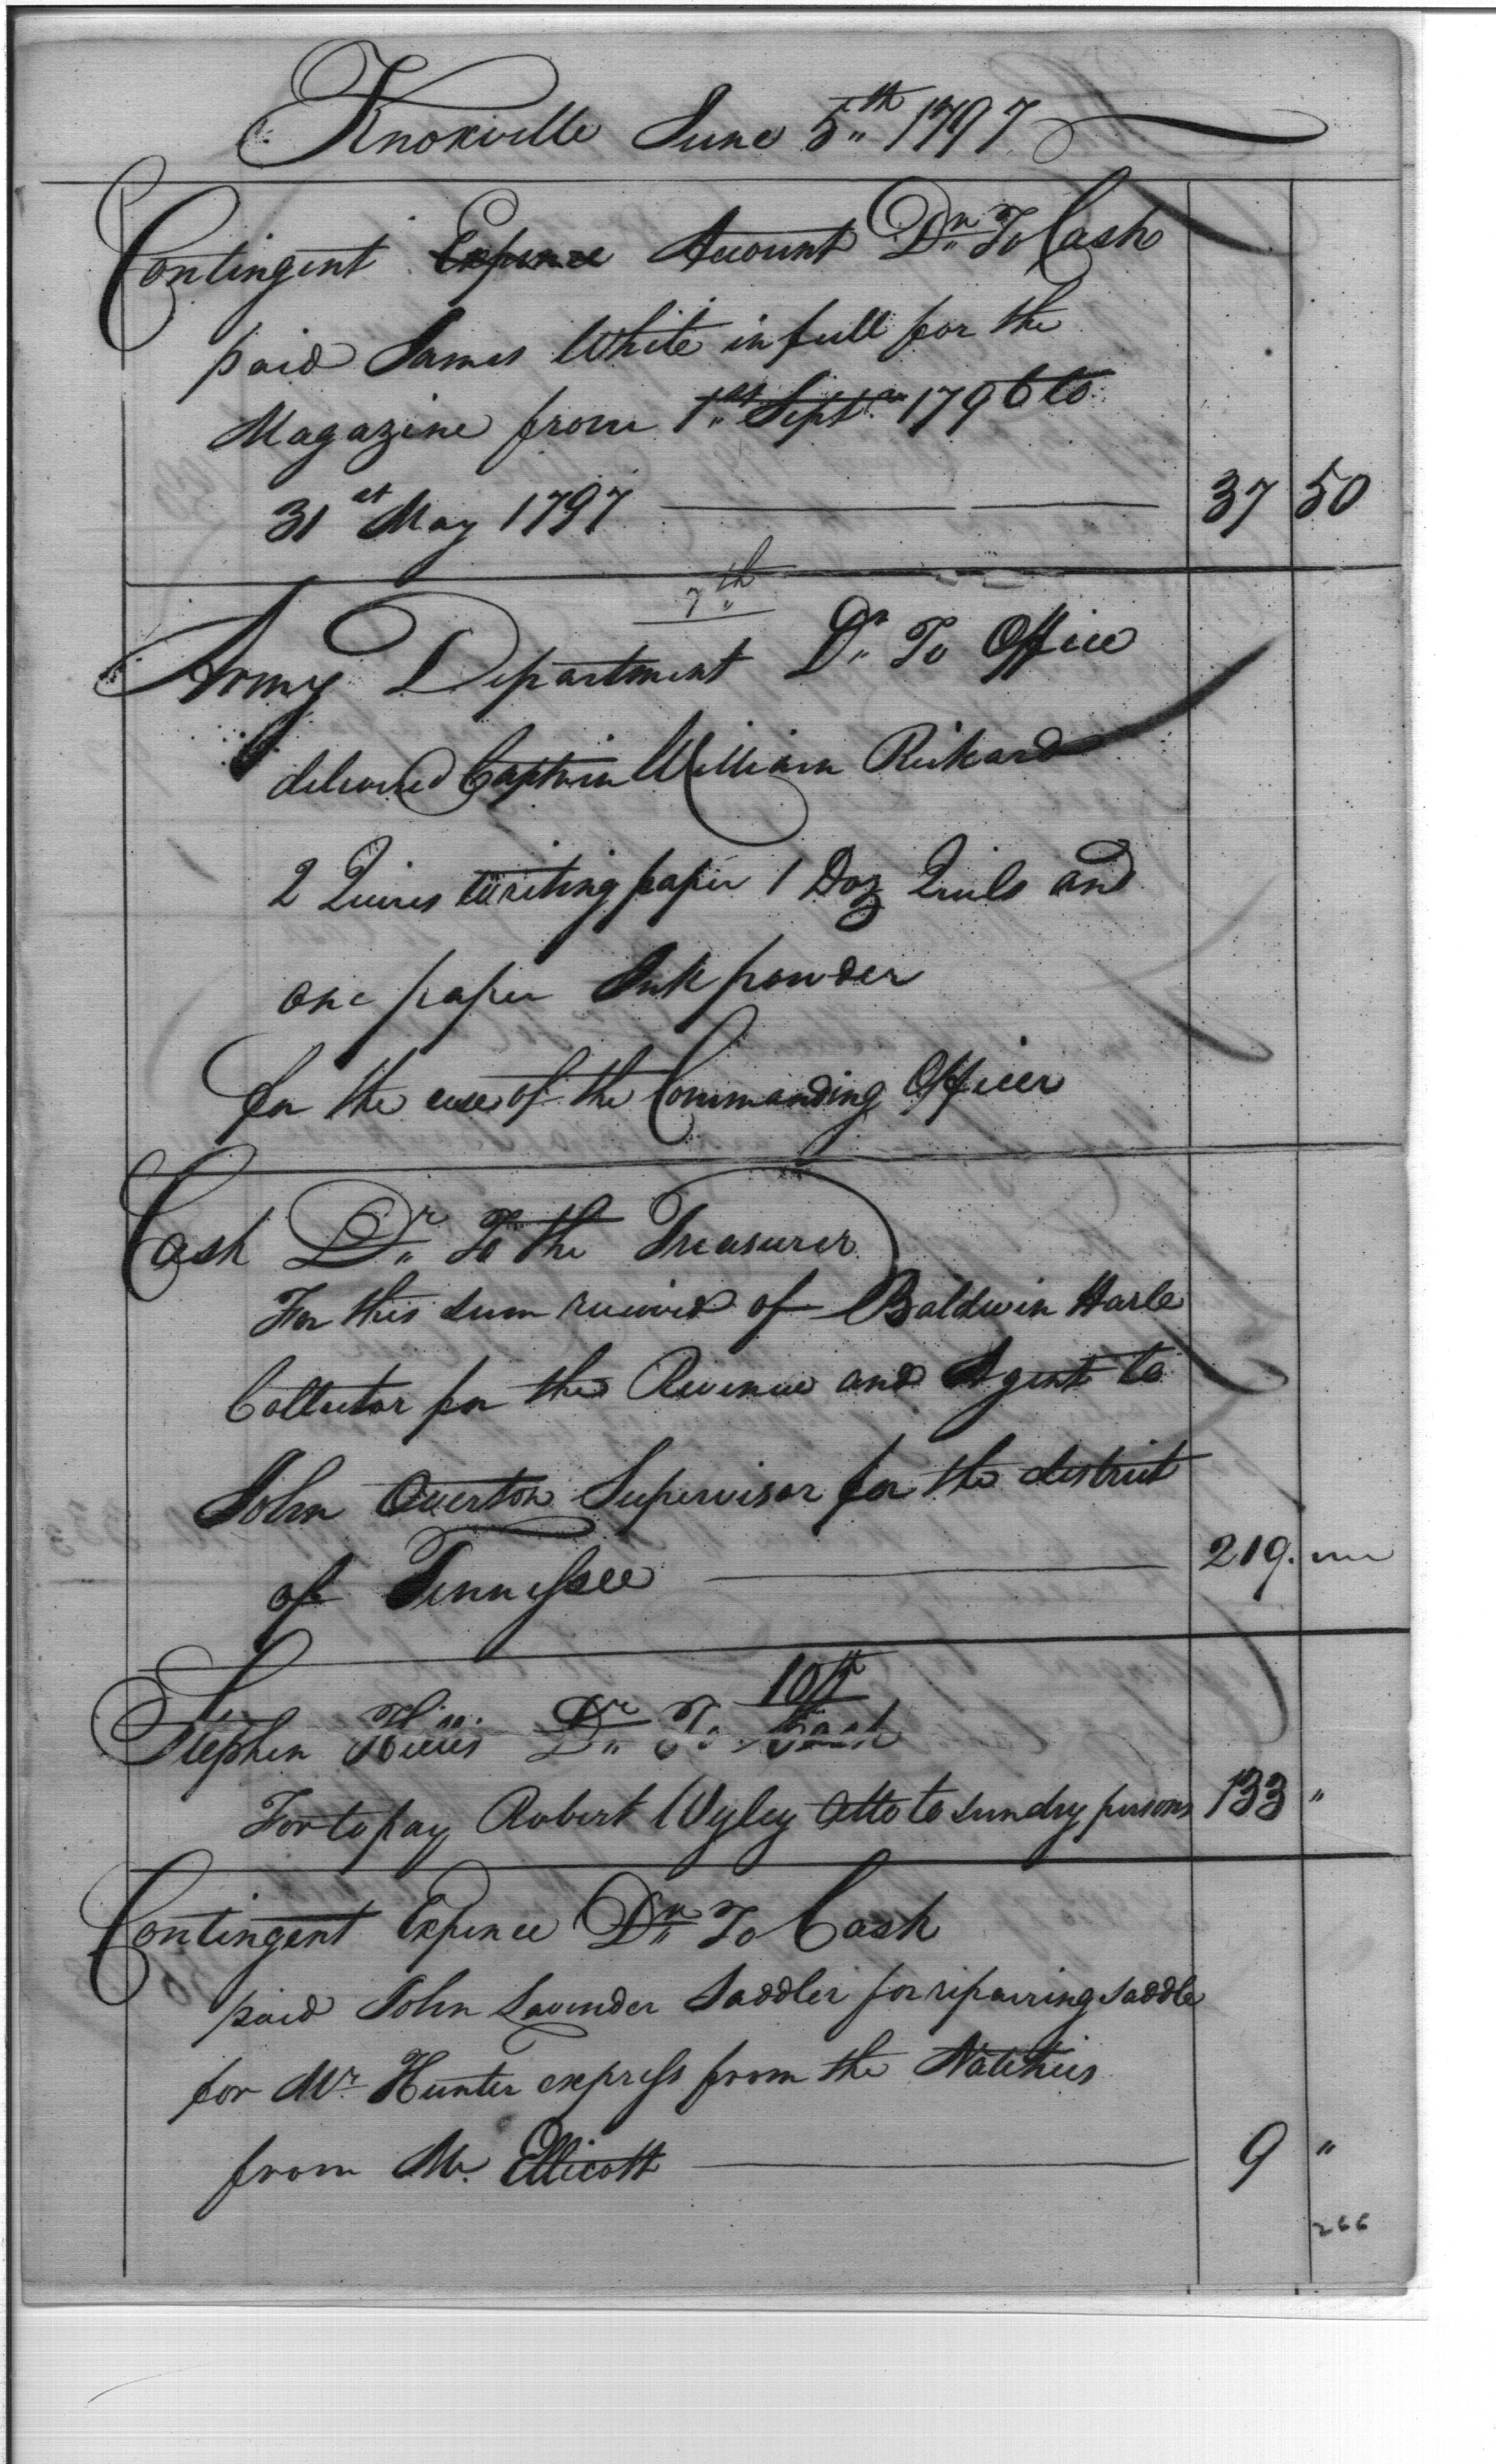 Knoxville June 5th 1797
Contingent Expence Account Dr To Cash
paid James White in full for the
Magazine from 1st Septr 1796 to
31st May 1797 37 50
7th
Army Department Dr To Office
delivered Captain William Rickard
2 Quires writing paper 1 Doz Quils and
one paper Ink powder
for the use of the Commanding Officer
Cash Dr To the Treasurer
For this sum received of Baldwin Harle
Collector for the Revenue and Agent to
John Overton Supervisor for the district
of Tennessee 219.
10th
Stephen Dr To Cash
For to pay Robert Wyley to sundry persons 133 "
Contingent Expence Dr To Cash
paid John Lavender Saddler for repairing saddle
for Mr Hunter express from the Natches
from Mr. Ellicott 9 "
266